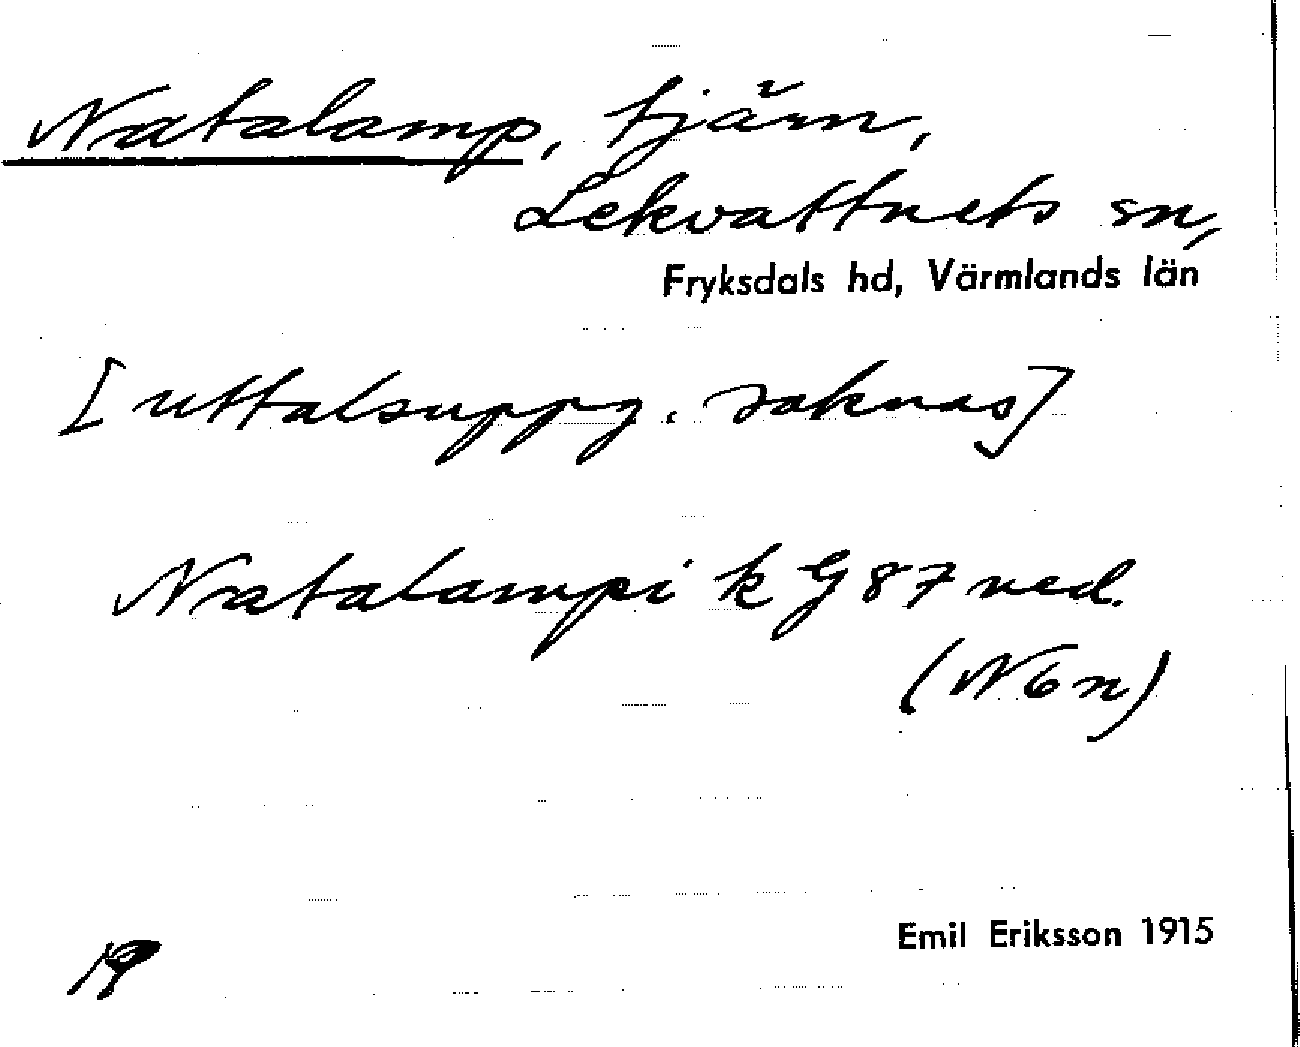 Natalamp, tjärn,
Lekvattnets sn,
Fryksdals hd, Värmlands län
[uttalsuppg. saknas]
Natalampi k G 87 ned.
(N6n)
Emil Eriksson 1915
19